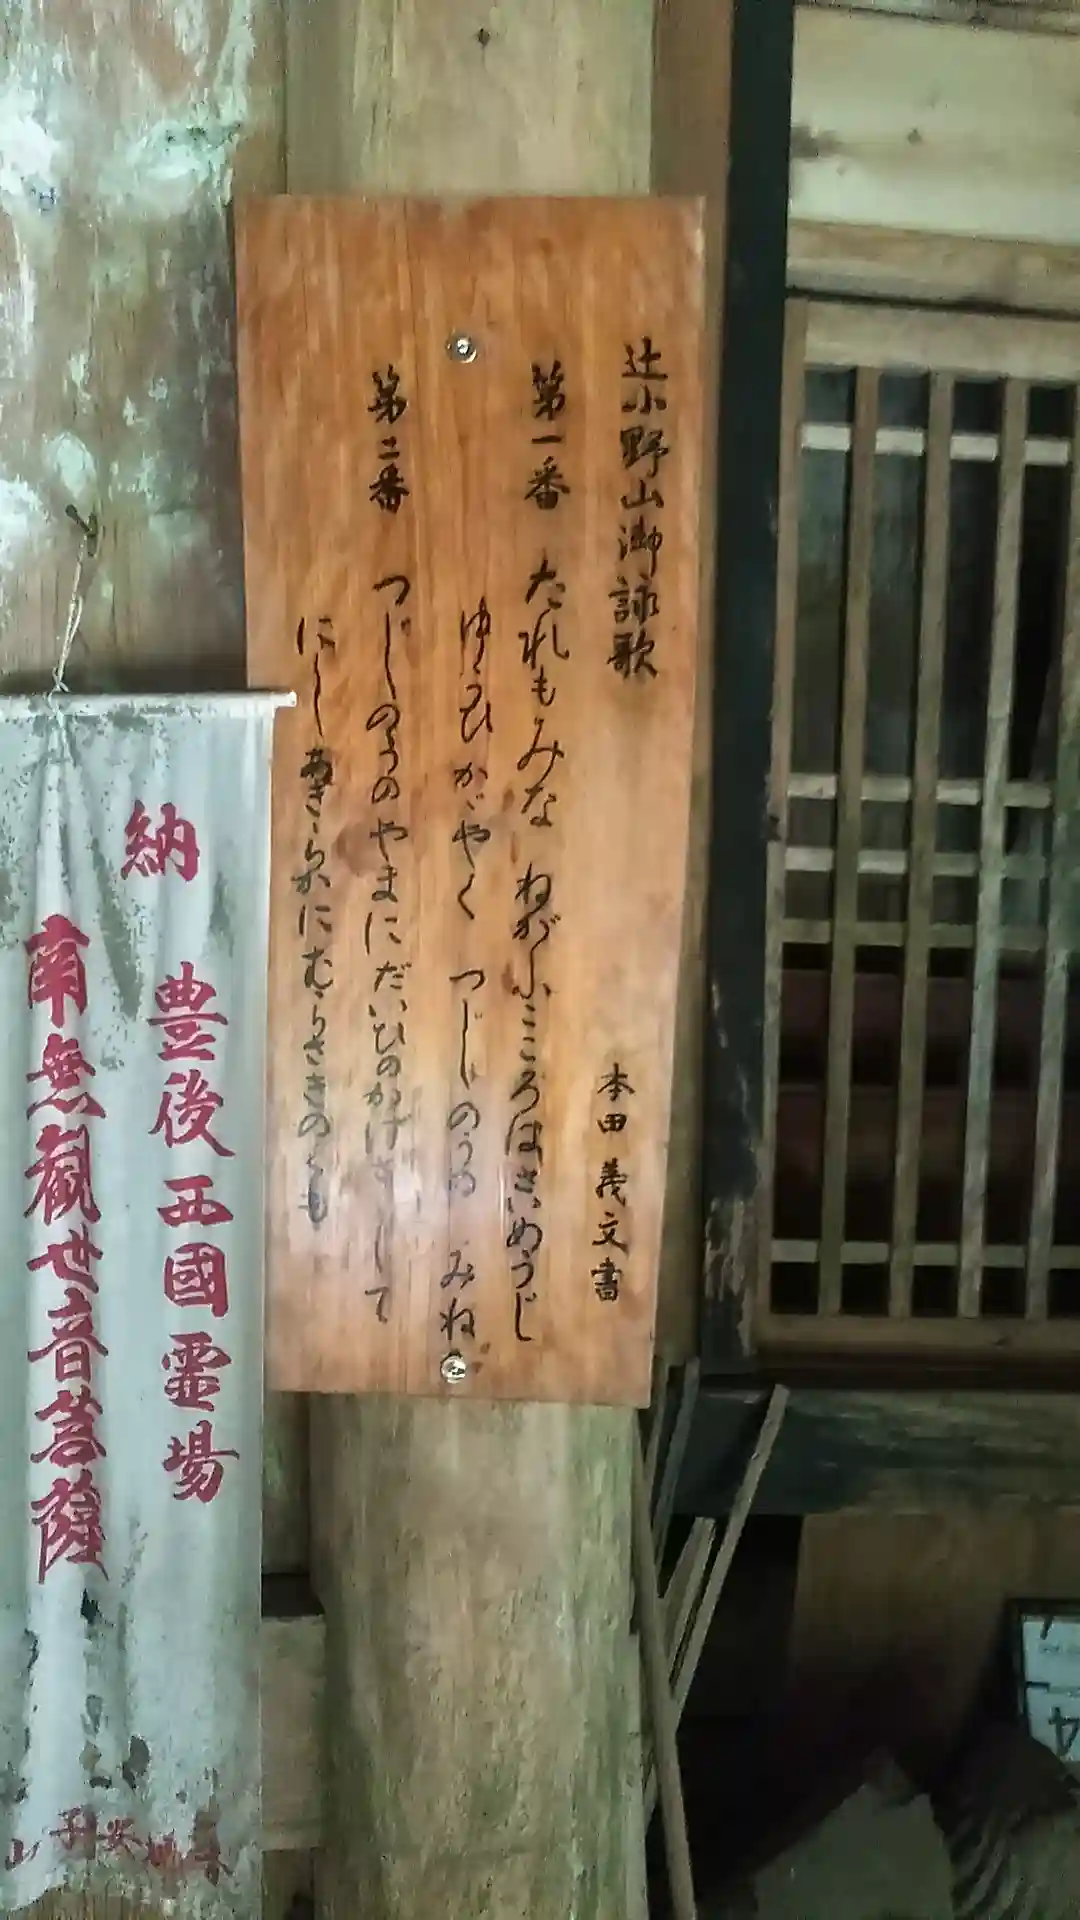 辻小野山御詠歌
本田義文書
第一番 たれもみな ねがふこころはさいめうじ
ゆうひかゞやく つじのうの みね
第二番 つじのうのやまにだいひのかげさして
にしあきらかにむらさきのくも
納
豊後西國霊場
南無観世音菩薩